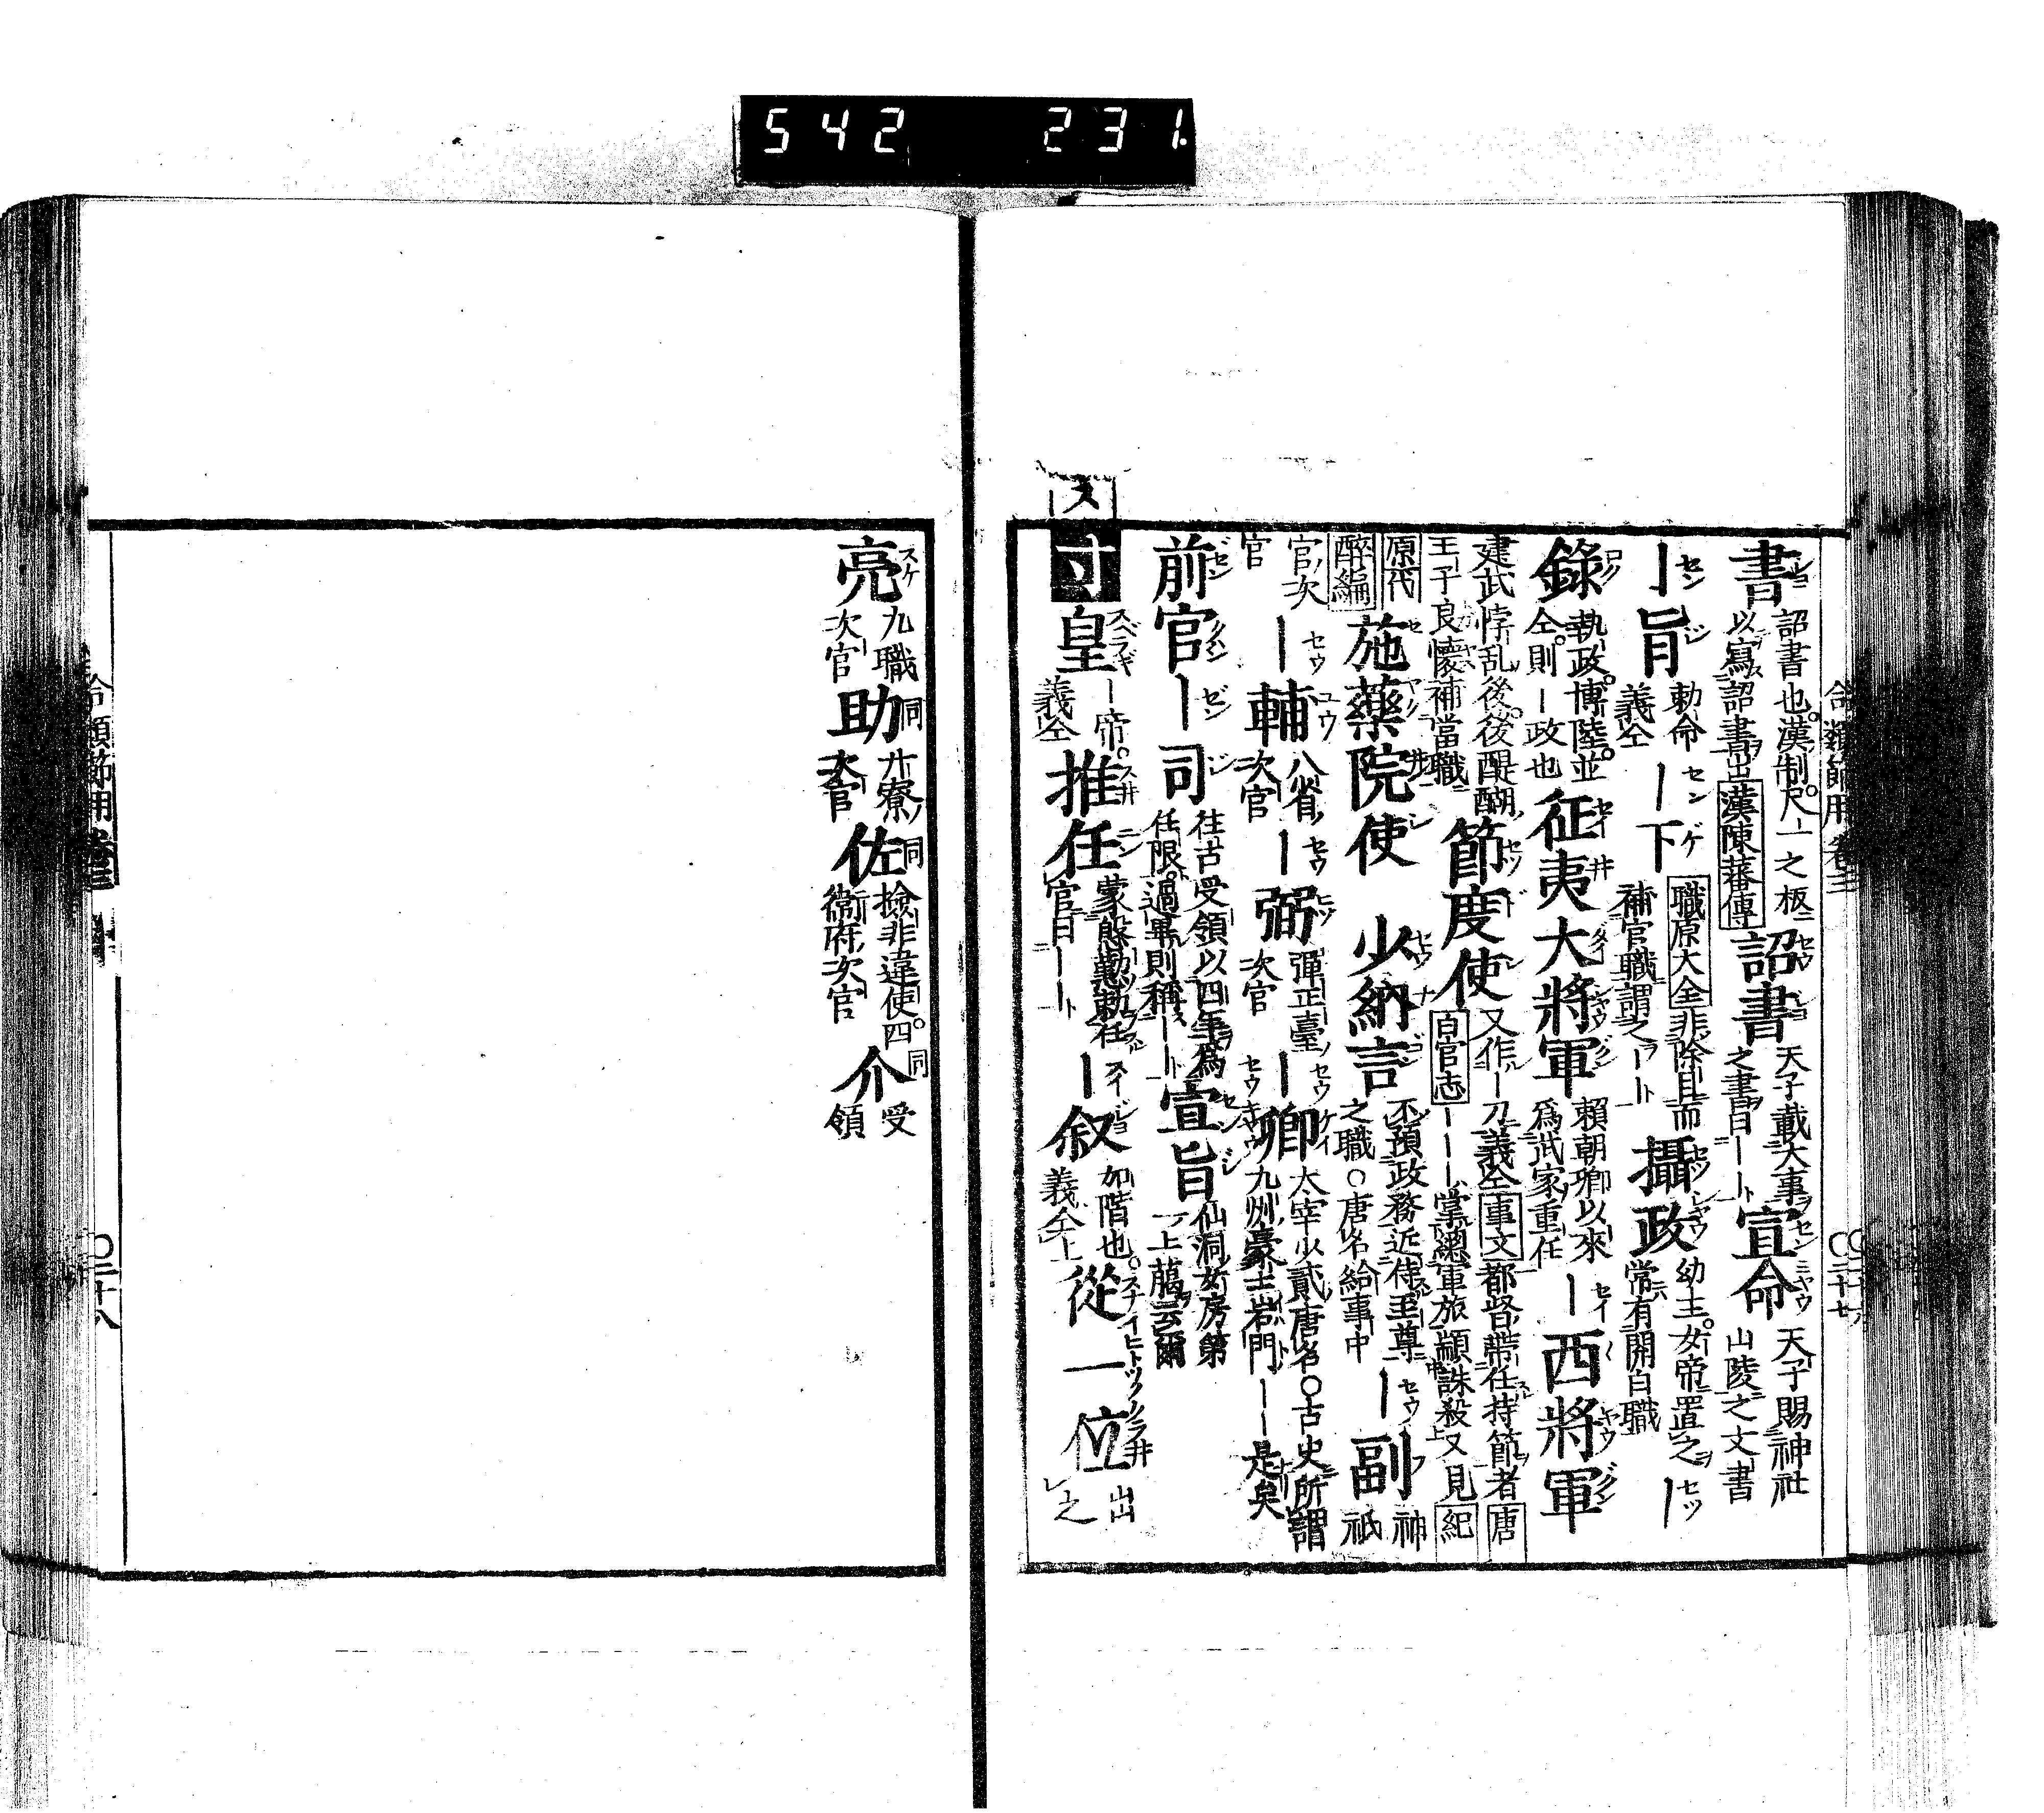 542 231.
合類節用 卷三 〇二十七
書 詔書也。漢制尺一之板以寫詔書出漢陳蕃傳 詔書 天子載大事之書曰｜｜ 宣命 天子賜神社山陵之文書
｜旨 勅命義仝 ｜下 職原大全非除目而補官職謂之｜｜ 攝政 幼主。女帝置之常有開白職 ｜
錄 執政。博陸。並仝。則｜政也 征夷大將軍 賴朝卿以來爲武家重任 ｜西將軍
建武悖乱後。後醍醐王子良懷補當職 節度使 又作｜刀義仝事文都督帶任持節者唐百官志｜｜｜掌總軍旅顓誅殺又見紀
原代醉編 施藥院使 少納言 不預政務近侍至尊之職〇唐名給事中 ｜副 神祇
官次官 ｜輔 八省次官 ｜弼 彈正臺次官 ｜卿 太宰少貳唐名〇古史所謂九州豪士岩門｜｜是矣
前官 ｜司 往古受領以四年爲任限。過畢則稱｜｜ 宣旨 仙洞女房第一上﨟云爾
ス 寸 皇 ｜帝。義仝 推任 官曰｜｜ ｜叙 如階也。義仝上 從一位 出之
亮 九職次官 助 寮次官 佐 撿非違使。四衞府次官 介 受領
合類節用 卷三 〇二十八